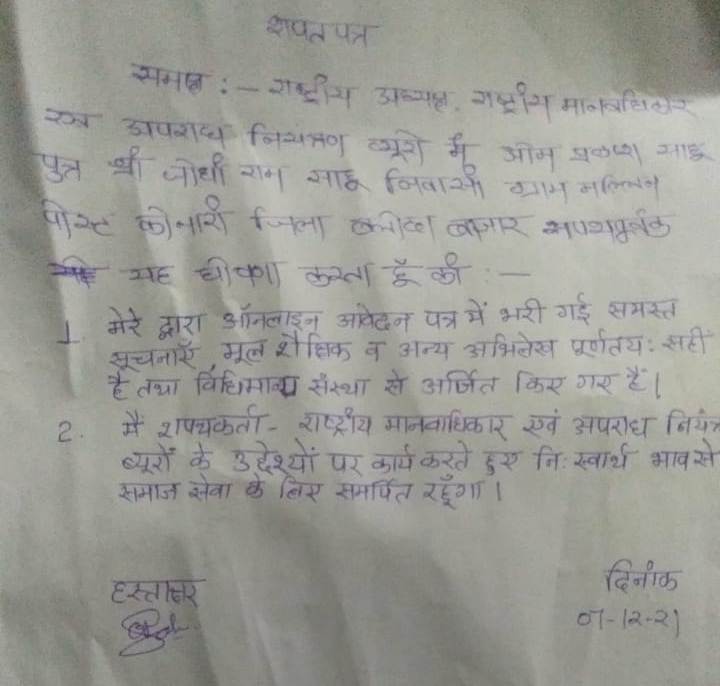 शपतपत्र
समक्ष :- राष्ट्रीय अध्यक्ष. राष्ट्रीय मानवधिकार
एवं अपराध नियत्रण ब्यूरो मैं ओम प्रकाश साहू
पुत्र श्री जोधी राम साहू निवासी ग्राम मल्लिन
पोस्ट कोनारी जिला बलौदा बाजार शपथपूर्वक
यह घोषणा करता हूँ की :-
1. मेरे द्वारा ऑनलाइन आवेदन पत्र में भरी गई समस्त
सूचनाएँ, मूल शैक्षिक व अन्य अभिलेख पूर्णतय: सही
है तथा विधिमान्य संस्था से अर्जित किए गए हैं।
2. मैं शपथकर्ता - राष्ट्रीय मानवाधिकार एवं अपराध नियंत्र
ब्यूरों के उद्देश्यों पर कार्य करते हुए नि: स्वार्थ भाव से
समाज सेवा के लिए समर्पित रहूँगा।
हस्ताक्षर
दिनांक
07-12-21